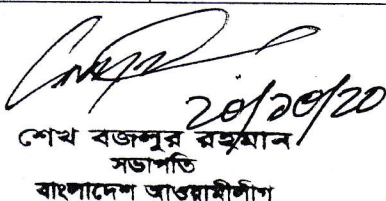 ২০/১০/২০
শেখ বজলুর রহমান
সভাপতি
বাংলাদেশ আওয়ামীলীগ